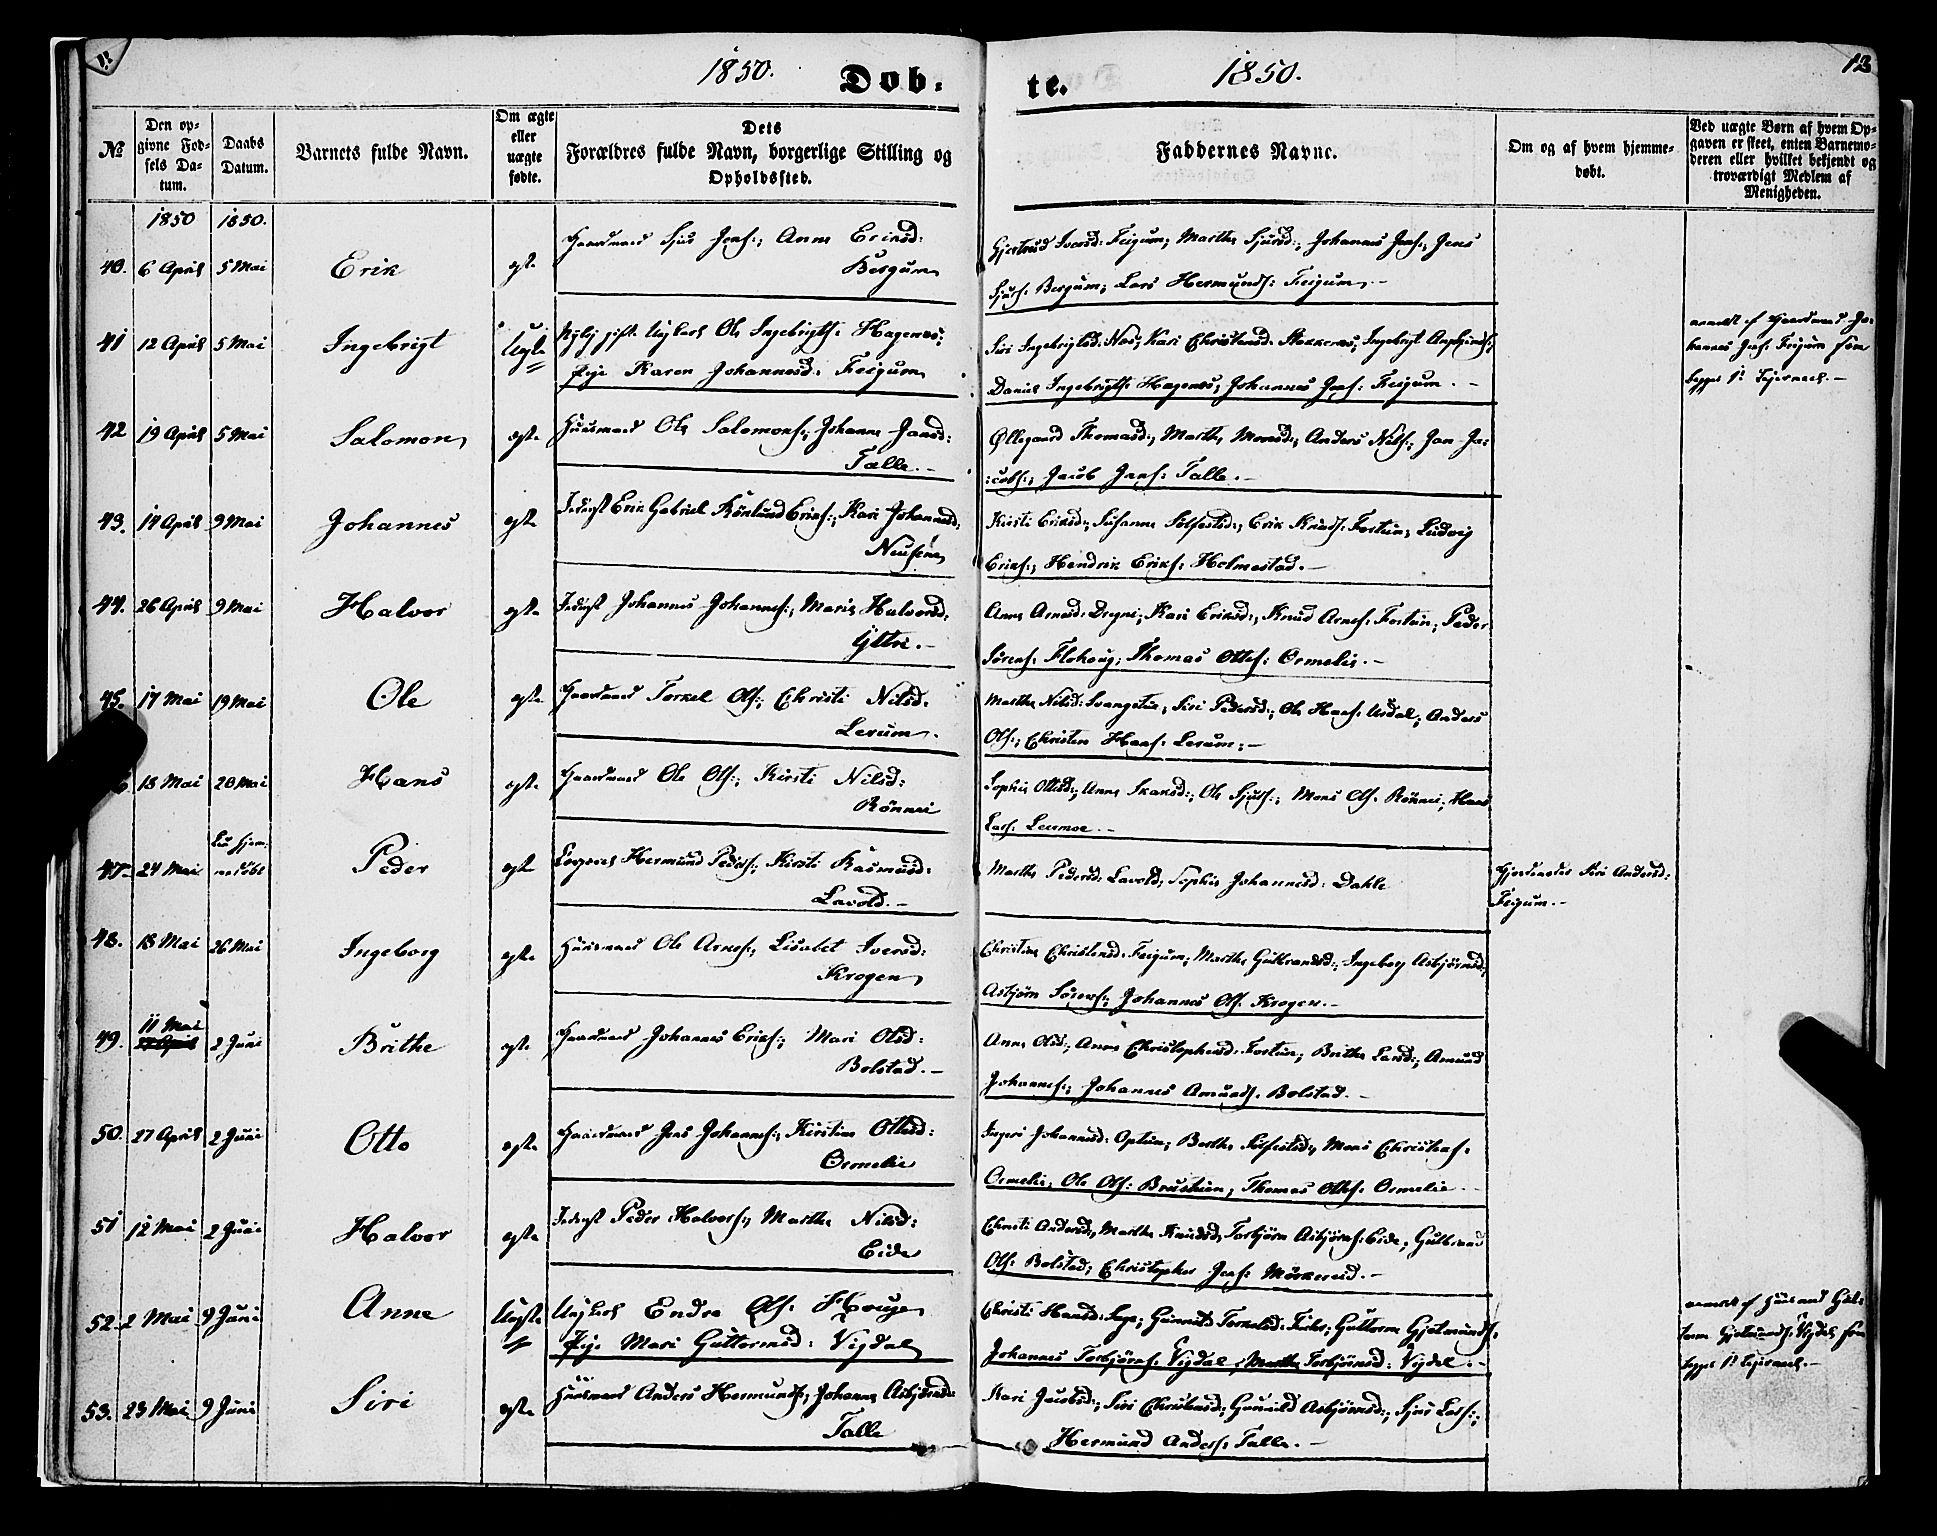 1850. Døb- te. 1850. 13
№ Den opgivne Fødsels Datum. Daabs Datum. Barnets fulde Navn. Om ægte eller uægte fødte. Dets Forældres fulde Navn, borgerlige Stilling og Opholdssted. Faddernes Navne. Om og af hvem hjemmedøbt. Ved uægte Børn af hvem Opgaven er skeet, enten Barnemoderen eller hvilket bekjendt og troværdigt Medlem af Menigheden.
1850 1850.
40. 6 April 5 Mai Erik egte Gaardmand Sjur Jensen; Anne Eriksd: Bergum
Gjertrud Iversd: Feigum; Marthe Sjursd:; Johannes Jens:; Jens
Sjurs: Bergum; Lars Hermunds: Feigum.-
41 12 April 5 Mai Ingebrigt Uegte gift Ungkarl Ole Ingebrigts: Hagenes;
Pige Karen Johannesd: Feigum
Siri Ingebrigtsd: Nes; Kari Christensd: ; Ingebrigt
Daniel Ingebrigts: Hagenes; Johannes Jens: Feigum.-
anmeldt af Gaardmand Johannes Jens: Feigum som
42 19 April 5 Mai Salomon egte Huusmand Ole Salomons:; Johanne Jansd:
Talle.-
Øllegaard Thomasd:; Marthe Monsd:; Anders Nils:; Jan Ja-
cobs:; Jacob Jans: Talle.-
43. 14 April 9 Mai Johannes egte Inderst Erik Gabriel Rönlund Eriks:; Kari Johannesd:
Kirsti Eriksd:; Susanne Sölfestsd:; Erik Knuds: Fortun; Ludvig
Eriks:; Hendrik Eriks: Holmestad.-
44. 26 April 9 Mai Halvor egte Inderst Johannes Johannes:; Marie Halvorsd:
Yttri.-
Anne Arnesd: ; Kari Eriksd:; Knud Arnes: Fortun; Peder
Sörens: Flohoug; Thomas Ottes: Ormelie.-
45. 17 Mai 19 Mai Ole egte Gaardmand Torkel Ols:; Christi Nilsd:
Lerum.
Marthe Nilsd: ; Siri Pedersd:; Ole Hans: Urdal; Anders
Ols:; Christen Hans: Lerum;-
6 18 Mai 20 Mai Hans egte Gaardmand Ole Ols:; Kirsti Nilsd:
Rönnei
Sophie Ottesd:; Anne ; Ole Sjurs:; Mons Ols: Rönnei; Hans
Lars: Lermoe.-
47 24 Mai Hjemmedöbt Peder egte Hermund Peders:; Kirsti Rasmusd:
Lavold.-
Marthe Pedersd: Lavold; Sophie Johannesd: Dahle
Gjordemoder Siri Andersd:
Feigum.-
48. 18 Mai 26 Mai Ingeborg egte Huusmand Ole Arnes:; Lisabet Iversd:
Krogen
Christine Christensd: Feigum; Marthe Gulbrandsd:; Ingeborg Asbjörnsd:;
Asbjörn Sörens:; Johannes Ols: Krogen.-
49. 11 Mai 2 Juni Brithe egte Gaardmand Johannes Eriks:; Mari Olsd:
Bolstad.-
Anne Olsd:; Anne Christophersd: Fortun; Brithe Larsd:; Amund
Johannes:; Johannes Amunds: Bolstad.-
50. 27 April 2 Juni Otto egte Gaardmand Jens Johannes:; Kirstine Ottesd:
Ormelie
Ingeri Johannesd: Optun; Berthe Sölfestsd:; Mons Christens:
Ormelie; Ole Ols: ; Thomas Ottes: Ormelie.-
51 12 Mai 2 Juni Halvor egte Inderst Peder Halvors:; Marthe Nilsd:
Eide
Christi Andersd:; Marthe Knudsd:; Torbjörn Asbjörns: Eide; Gulbrand
Ols: Bolstad; Christopher Jens: Mörkereid.-
52. 2 Mai 9 Juni Anne Uegte Ungkarl Endre Ols: Houge
Pige Mari Guttormsd: Vigdal
Christi Hansd: ; Gunnild Torkelsd: ; Guttorm Gjetmunds:
Johannes Torbjörns: Vigdal; Marthe Torbjörnsd: Vigdal.-
anmeldt af Guttorm Gjetmunds: Vigdal som
53. 23 Mai 9 Juni Siri egte Huusmand Anders Hermunds:; Johanne Asbjörnsd:
Talle
Kari Jacobsd:; Siri Christensd:; Gunnild Asbjörnsd:; Sjur Lars:;
Hermund Anders: Talle.-